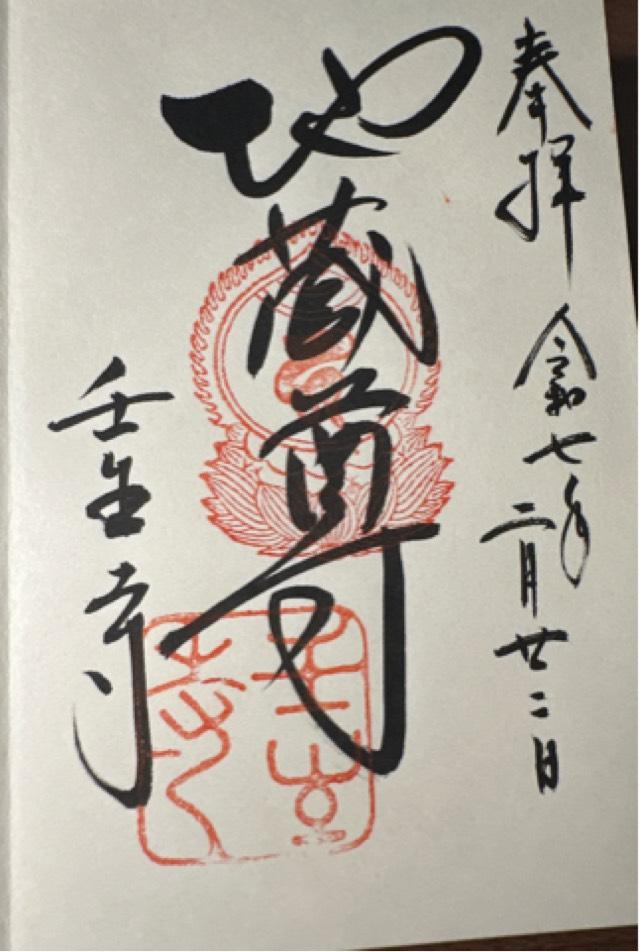 奉拝
令和七年二月廿二日
地蔵尊
壬生寺